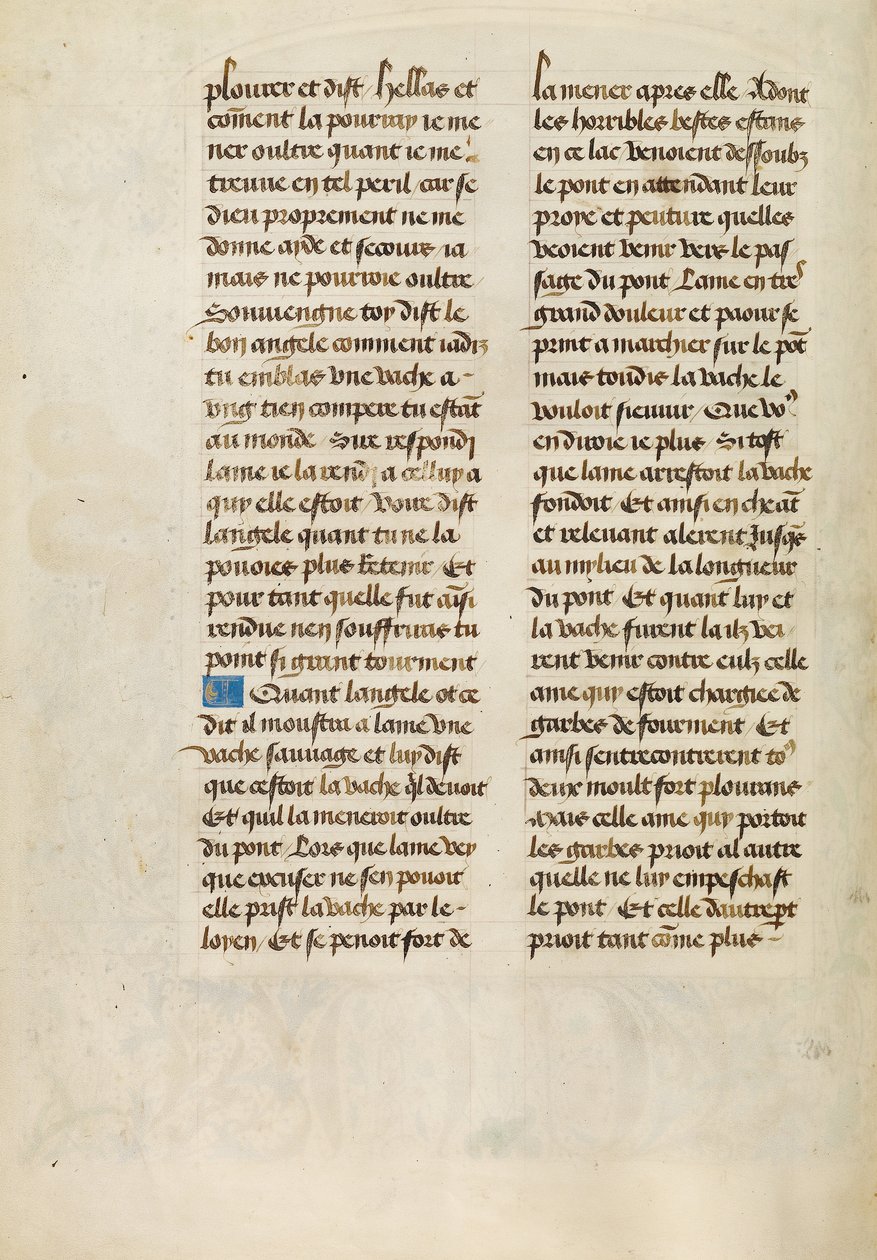 plourer et dist / Hellas et
com̄ent la pourray ie me
ner oultre quant ie me
treuue en tel peril / car se
dieu proprement ne me
donne ayde et secours ia
mais ne pourroie oultre
Souuiengne toy dist le
bon angele comment iadiz
tu emblas vne vache a-
vng tien compere tu estāt
au monde / Sire respondj
lame ie la rendj a celluy a
quy elle estoit / Voire dist
langele quant tu ne la
pouoies plus Retenir / Et
pour tant quelle fut aīsi
rendue nen souffriras tu
point si grant tourment
Quant langele ot ce
dit il moustra a lame vne
vache sauuage et luy dist
que cestoit la vache q̄l deuoit
Et quil la meneroit oultre
du pont / Lors que lame vey
que excuser ne sen pouoit
elle prist la vache par le-
loyen / Et se penoit fort de
la mener apres elle / Adont
les horribles bestes estans
en ce lac venoient dessoubz
le pont en attendant leur
proye et peuture quelles
veoient venir vers le pas
sage du pont / Lame en tres
grand douleur et paour se
print a marchier sur le pōt
mais toudis la vache le
vouloit sieuuir / Que voꝰ
en diroie ie plus / Si tost
que lame arrestoit la vache
fondoit / Et ainsi en cheāt
et releuant alerent Jusq̄s
au mylieu de la longueur
du pont / Et quant luy et
la vache furent la ilz vei/
rent venir contre eulz celle
ame quy estoit chargiee de
garbes de fourment / Et
ainsi sentrecontrerent toꝰ
deux moult fort plourans
Mais celle ame quy portoit
les garbes prioit al autre
quelle ne luy empeschast
le pont / Et celle dautrep̲t
prioit tant cōme plus-